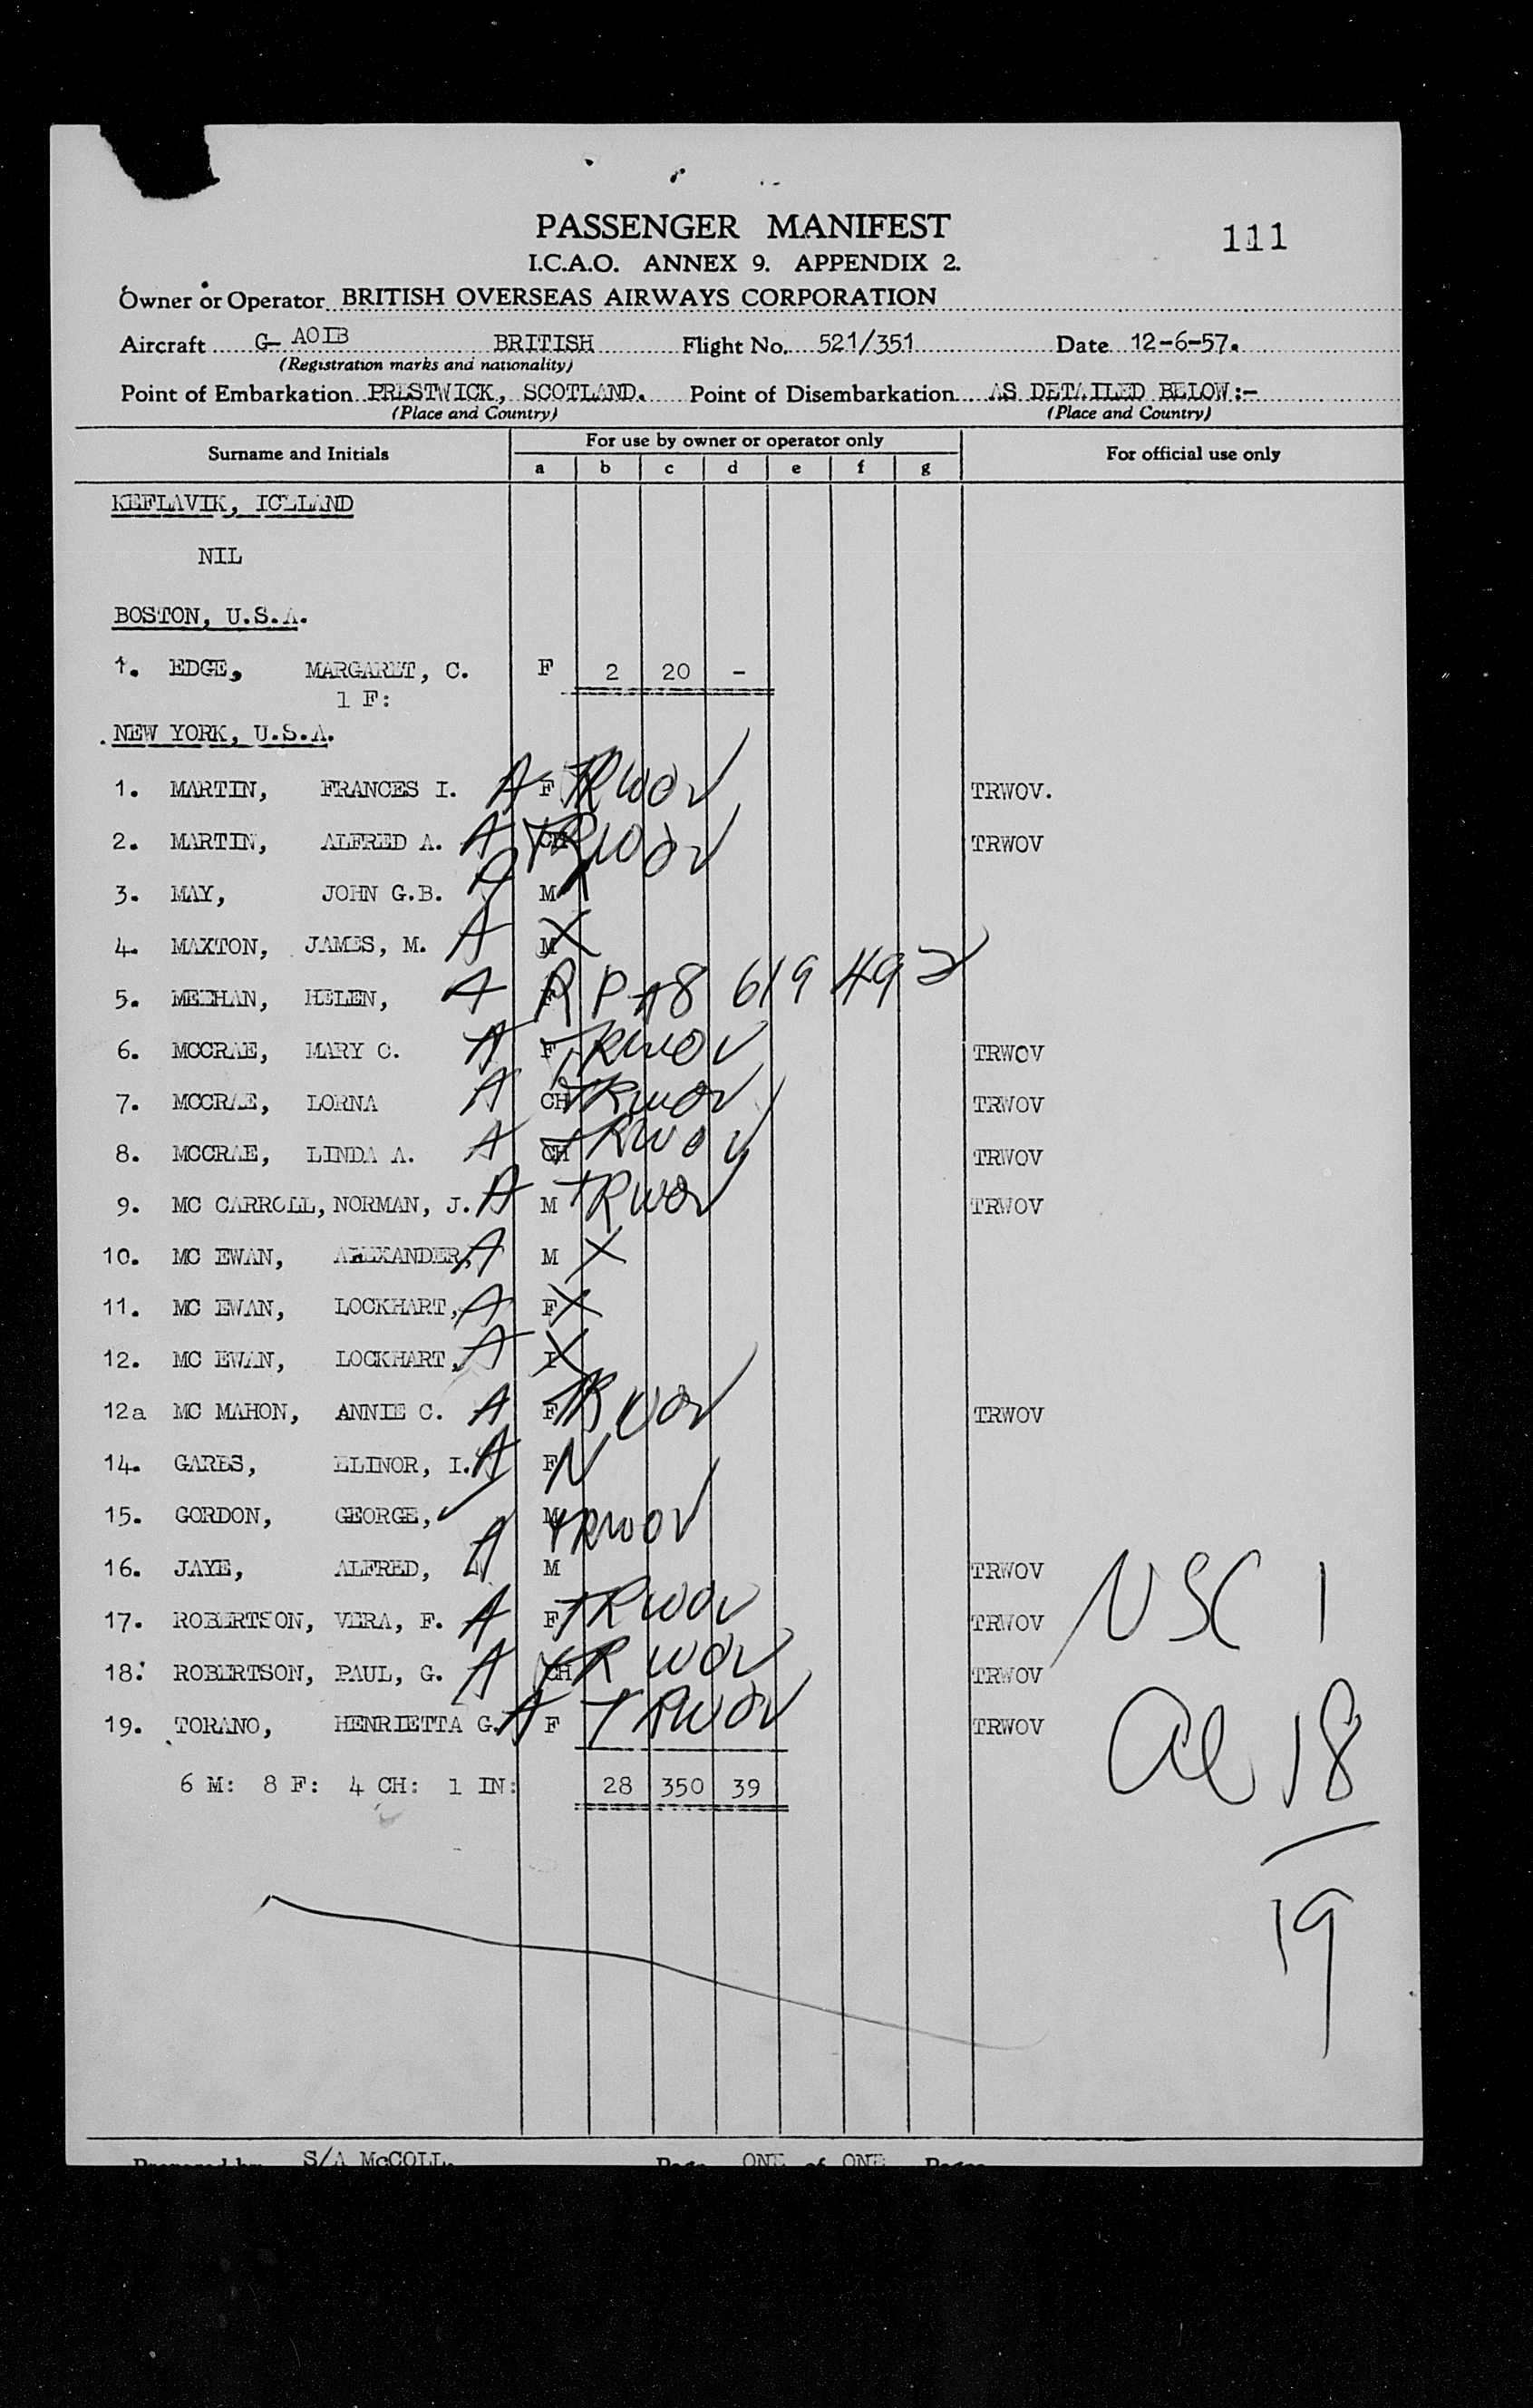 PASSENGER MANIFEST
111
I.C.A.O. ANNEX 9. APPENDIX 2.
Owner or Operator BRITISH OVERSEAS AIRWAYS CORPORATION
Aircraft G- AOIB BRITISH Flight No. 521/351 Date 12-6-57.
(Registration marks and nationality)
Point of Embarkation PRESTWICK, SCOTLAND. Point of Disembarkation AS DETAILED BELOW:-
(Place and Country) (Place and Country)
Surname and Initials For use by owner or operator only For official use only
a b c d e f g
KEFLAVIK, ICELAND
NIL
BOSTON, U.S.A.
1. EDGE, MARGARET, C. F 2 20 -
1 F:
NEW YORK, U.S.A.
1. MARTIN, FRANCES I. A F TRWOV TRWOV.
2. MARTIN, ALFRED A. A CH TRWOV TRWOV
3. MAY, JOHN G.B. A M
4. MAXTON, JAMES, M. A M X
5. MEEHAN, HELEN, A F R P A8 619 492
6. MCCRAE, MARY C. A F TRWOV TRWOV
7. MCCRAE, LORNA A CH TRWOV TRWOV
8. MCCRAE, LINDA A. A CH TRWOV TRWOV
9. MC CARROLL, NORMAN, J. A M TRWOV TRWOV
10. MC EWAN, ALEXANDER, A M X
11. MC EWAN, LOCKHART, A F X
12. MC EWAN, LOCKHART, A I X
12a MC MAHON, ANNIE C. A F TRWOV TRWOV
14. GARES, ELINOR, I. A F N
15. GORDON, GEORGE, M TRWOV
16. JAYE, ALFRED, A M TRWOV
17. ROBERTSON, VERA, F. A F TRWOV TRWOV
18. ROBERTSON, PAUL, G. A CH TRWOV TRWOV
19. TORANO, HENRIETTA G. A F TRWOV TRWOV
6 M: 8 F: 4 CH: 1 IN: 28 350 39
NSC 1
al 18
19
Prepared by S/A McCOLL. Page ONE of ONE Pages